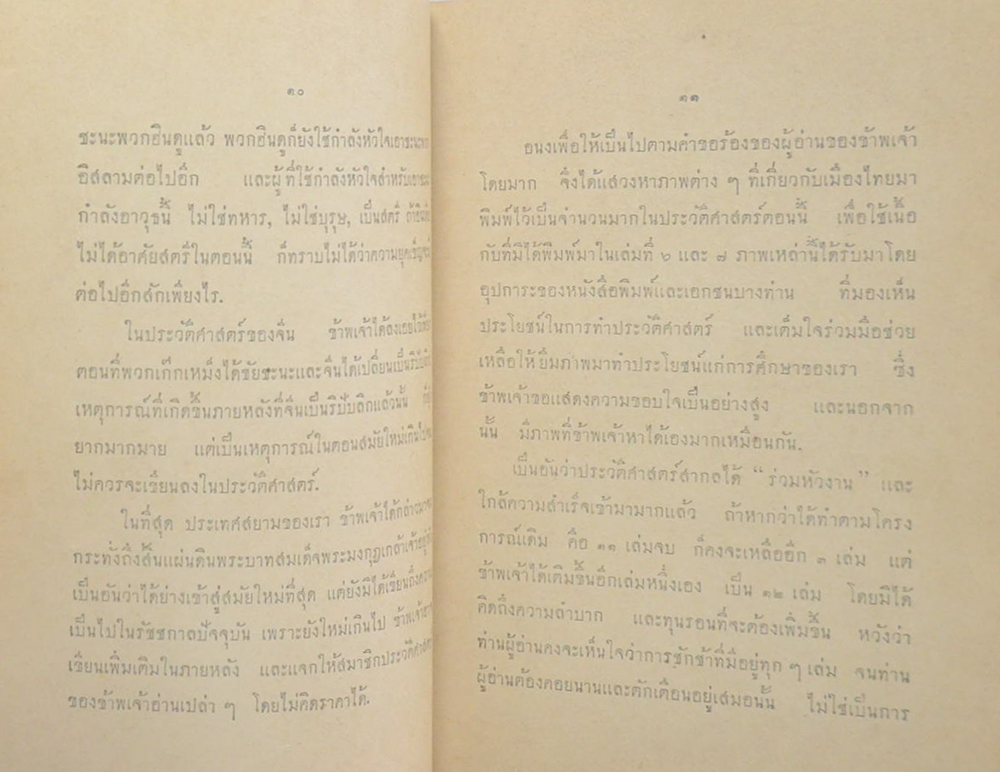 ๑๐
ชะนะพวกฮินดูแล้ว พวกฮินดูก็ยังใช้กำลังหัวใจเอาชะนะพวก
อิสลามต่อไปอีก และผู้ที่ใช้กำลังหัวใจสำหรับเอาชะนะ
กำลังอาวุธนี้ ไม่ใช่ทหาร, ไม่ใช่บุรุษ, เป็นสตรี ถ้าอินเดีย
ไม่ได้อาศัยสตรีในตอนนี้ ก็ทราบไม่ได้ว่าความยุคเข็ญจะมี
ต่อไปอีกสักเพียงไร.
ในประวัติศาสตร์ของจีน ข้าพเจ้าได้ลงเอยไว้เพียง
ตอนที่พวกเก๊กเหม็งได้ชัยชะนะและจีนได้เปลี่ยนเป็นริปับลิก
เหตุการณ์ที่เกิดขึ้นภายหลังที่จีนเป็นริปับลิกแล้วนั้น
ยากมากมาย แต่เป็นเหตุการณ์ในตอนสมัยใหม่เกินไปจน
ไม่ควรจะเขียนลงในประวัติศาสตร์.
ในที่สุด ประเทศสยามของเรา ข้าพเจ้าได้กล่าวมาจน
กระทั่งถึงสิ้นแผ่นดินพระบาทสมเด็จพระมงกุฎเกล้าเจ้าอยู่หัว
เป็นอันว่าได้ย่างเข้าสู่สมัยใหม่ที่สุด แต่ยังมิได้เขียนถึงความ
เป็นไปในรัชชกาลปัจจุบัน เพราะยังใหม่เกินไป ข้าพเจ้าอาจ
เขียนเพิ่มเติมในภายหลัง และแจกให้สมาชิกประวัติศาสตร์
ของข้าพเจ้าอ่านเปล่า ๆ โดยไม่คิดราคาได้.
๑๑
อนึ่งเพื่อให้เป็นไปตามคำขอร้องของผู้อ่านของข้าพเจ้า
โดยมาก จึงได้แสวงหาภาพต่าง ๆ ที่เกี่ยวกับเมืองไทยมา
พิมพ์ไว้เป็นจำนวนมากในประวัติศาสตร์ตอนนี้ เพื่อใช้เนื้อ
กับที่มิได้พิมพ์มาในเล่มที่ ๖ และ ๗ ภาพเหล่านี้ได้รับมาโดย
อุปการะของหนังสือพิมพ์และเอกชนบางท่าน ที่มองเห็น
ประโยชน์ในการทำประวัติศาสตร์ และเต็มใจร่วมมือช่วย
เหลือให้ยืมภาพมาทำประโยชน์แก่การศึกษาของเรา ซึ่ง
ข้าพเจ้าขอแสดงความขอบใจเป็นอย่างสูง และนอกจาก
นั้น มีภาพที่ข้าพเจ้าหาได้เองมากเหมือนกัน.
เป็นอันว่าประวัติศาสตร์สากลได้ “ร่วมหัวงาน” และ
ใกล้ความสำเร็จเข้ามามากแล้ว ถ้าหากว่าได้ทำตามโครง
การณ์เดิม คือ ๑๑ เล่มจบ ก็คงจะเหลืออีก ๓ เล่ม แต่
ข้าพเจ้าได้เติมขึ้นอีกเล่มหนึ่งเอง เป็น ๑๒ เล่ม โดยมิได้
คิดถึงความลำบาก และทุนรอนที่จะต้องเพิ่มขึ้น หวังว่า
ท่านผู้อ่านคงจะเห็นใจว่าการชักช้าที่มีอยู่ทุก ๆ เล่ม จนท่าน
ผู้อ่านต้องคอยนานและตักเตือนอยู่เสมอนั้น ไม่ใช่เป็นการ